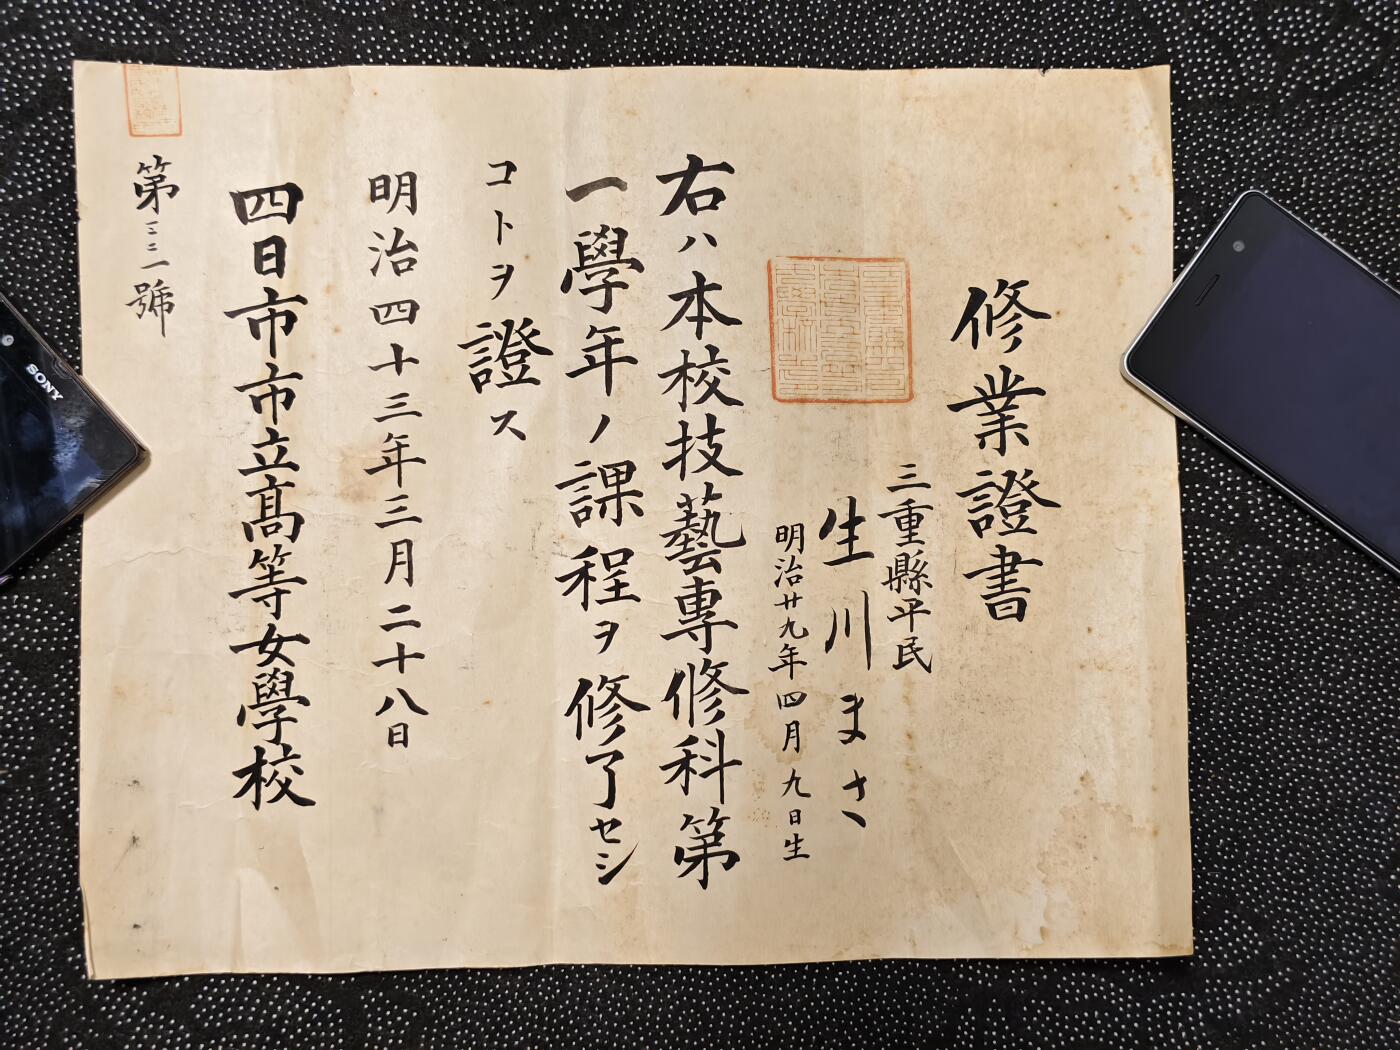 修業證書
三重縣平民
生川まさ
明治廿九年四月九日生
右ハ本校技藝專修科第
一學年ノ課程ヲ修了セシ
コトヲ證ス
明治四十三年三月二十八日
四日市市立髙等女學校
第三二一號
SONY